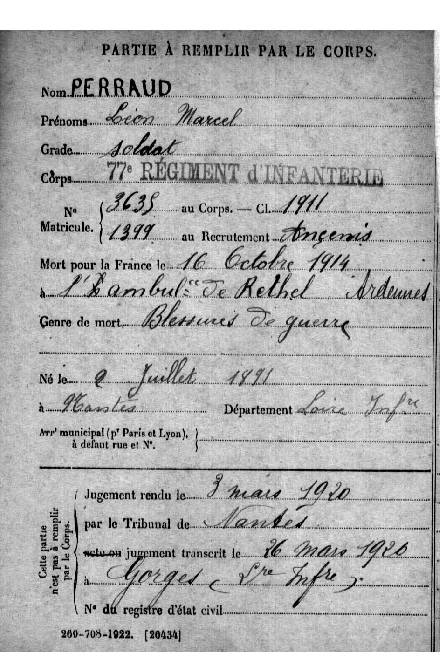 PARTIE À REMPLIR PAR LE CORPS.
Nom PERRAUD
Prénoms Léon Marcel
Grade soldat
Corps 77e RÉGIMENT d'INFANTERIE
N° Matricule. { 3635 au Corps. — Cl. 1911
1399 au Recrutement Ancenis
Mort pour la France le 16 Octobre 1914
à l'Ambulce de Rethel Ardennes
Genre de mort Blessures de guerre
Né le 9 Juillet 1891
à Nantes Département Loire Infre
Arrt municipal (pr Paris et Lyon), à défaut rue et N°. {
Cette partie n'est pas à remplir par le Corps.
Jugement rendu le 3 mars 1920
par le Tribunal de Nantes
acte ou jugement transcrit le 26 mars 1920
à Gorges (Lre Infre).
N° du registre d'état civil
260-708-1922. [26434]